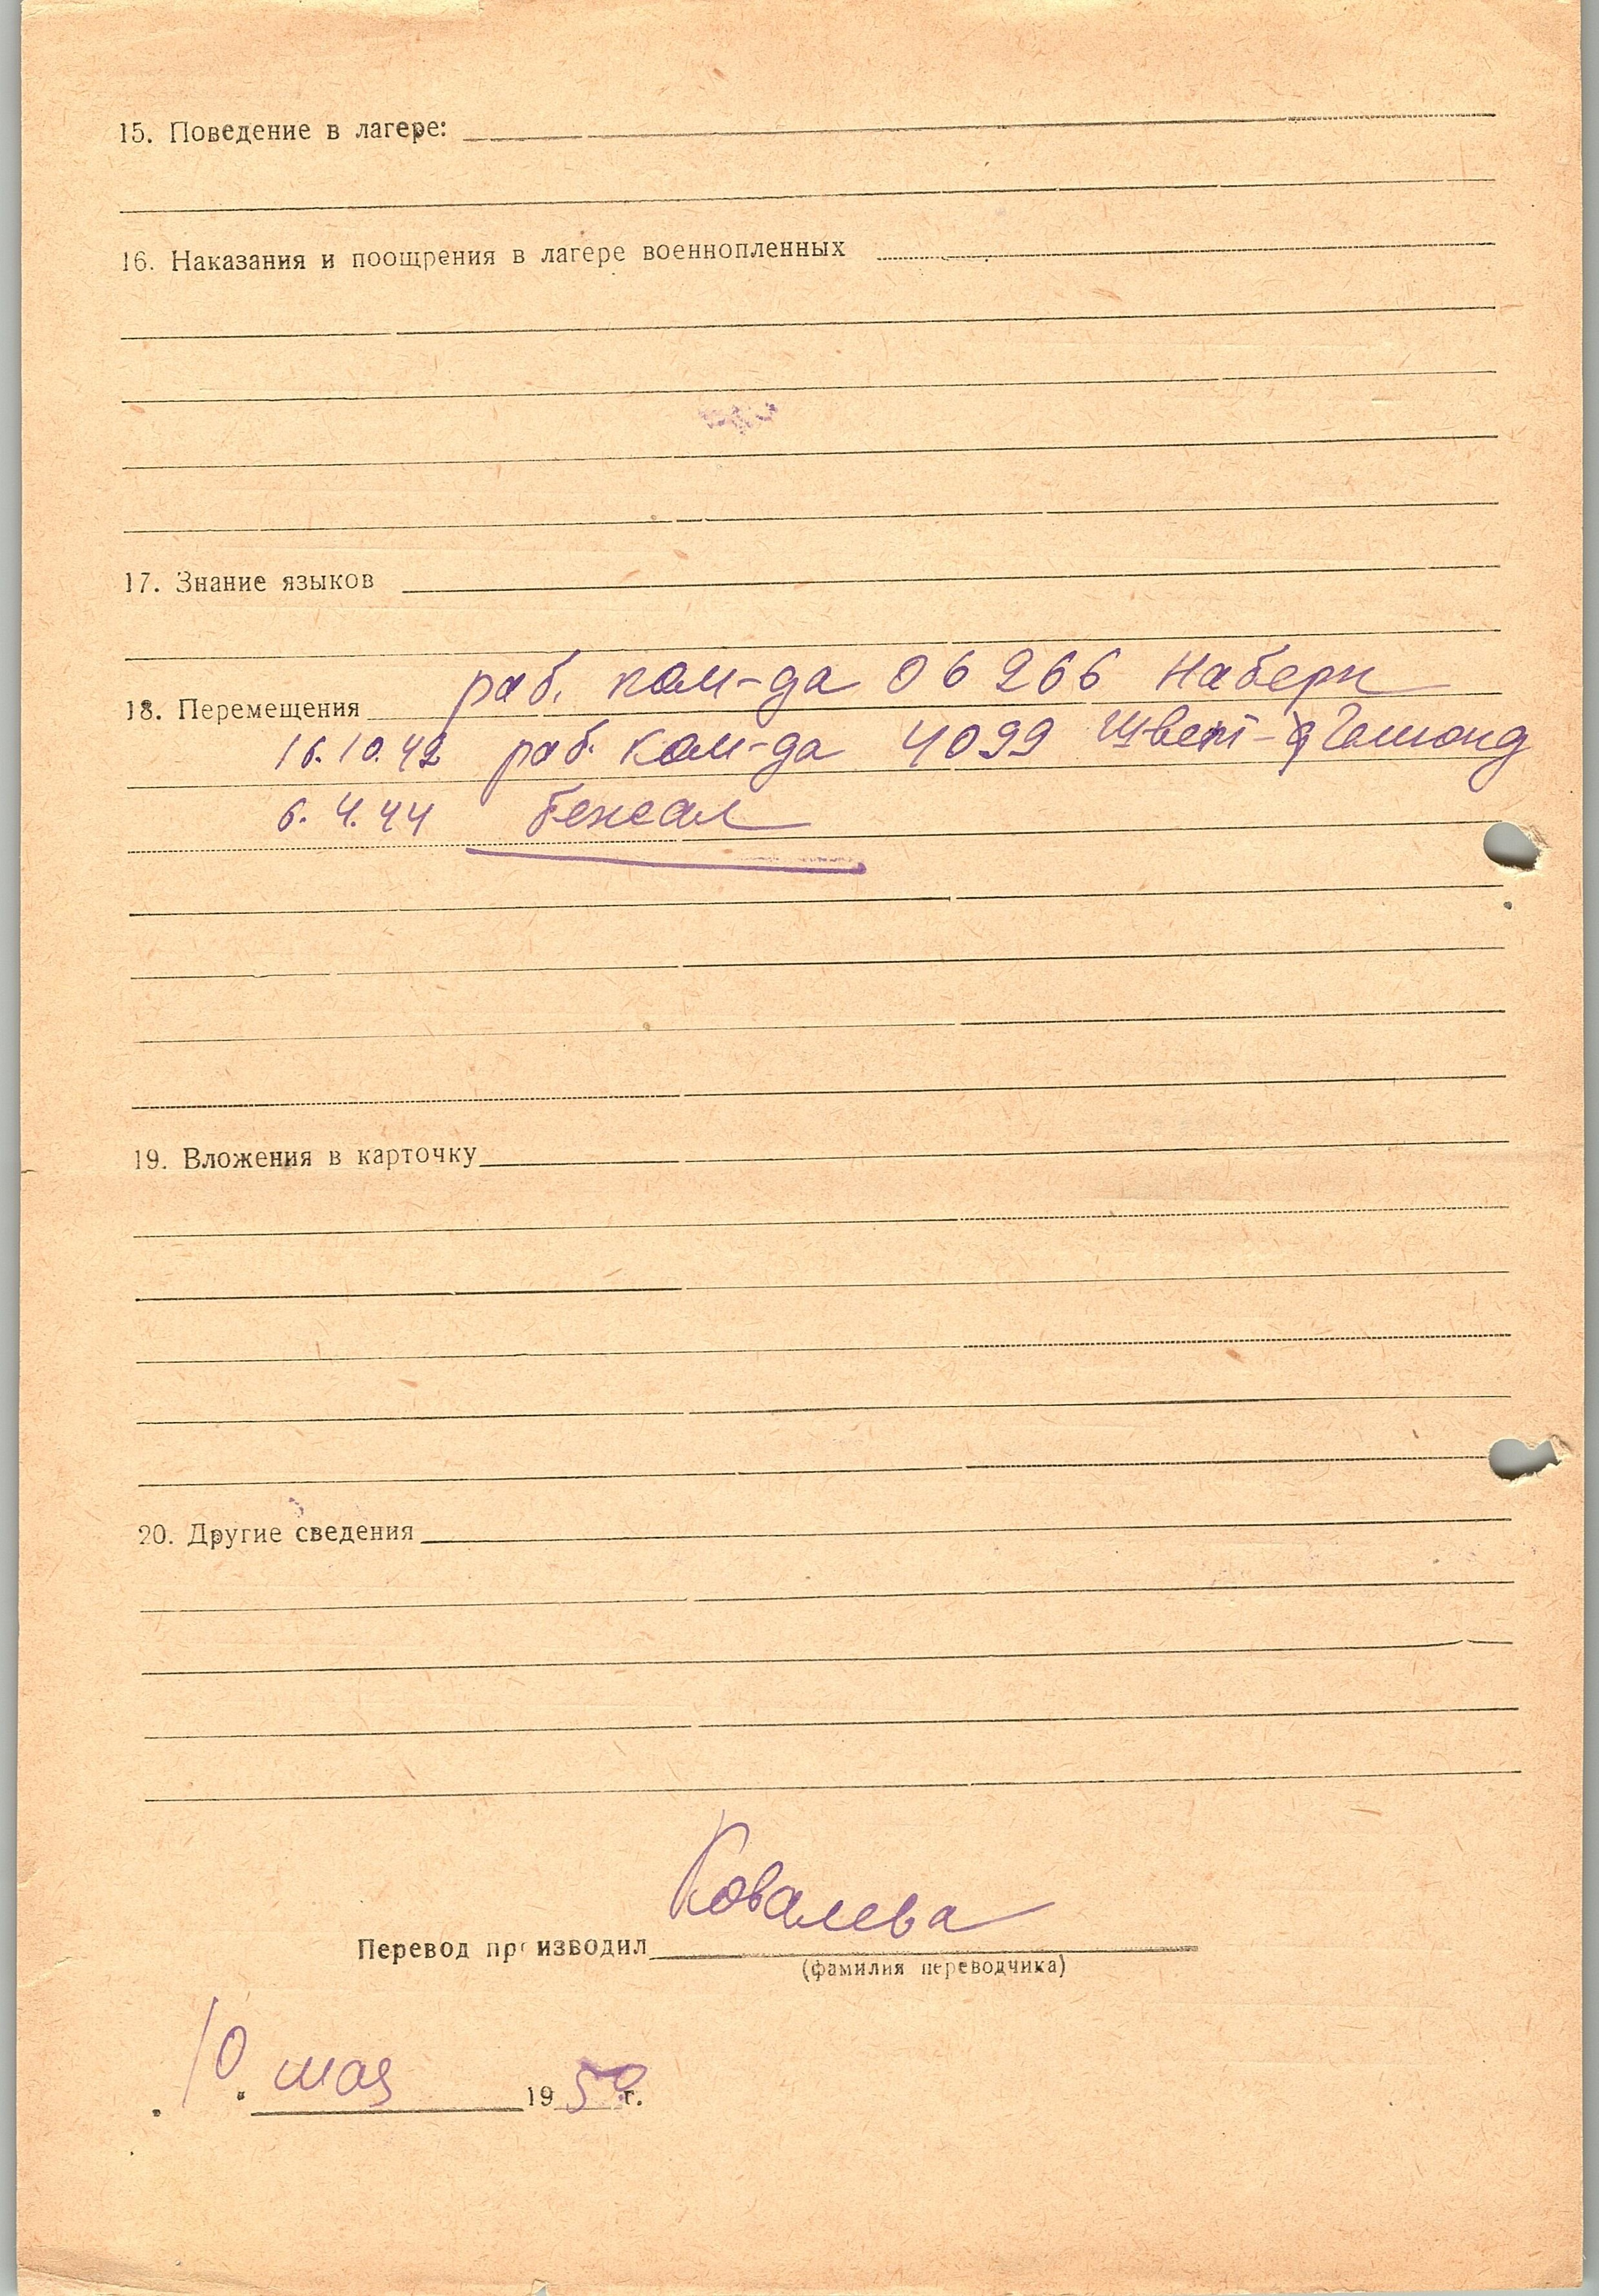 15. Поведение в лагере:
16. Наказания и поощрения в лагере военнопленных
17. Знание языков
раб. ком-да 06 266 Наберн
18. Перемещения
16.10.42 раб. ком-да 4099 Швет-Гмюнд
6.4.44 бежал
19. Вложения в карточку
20. Другие сведения
Ковалева
Перевод производил
(фамилия переводчика)
10 мая 1950 г.